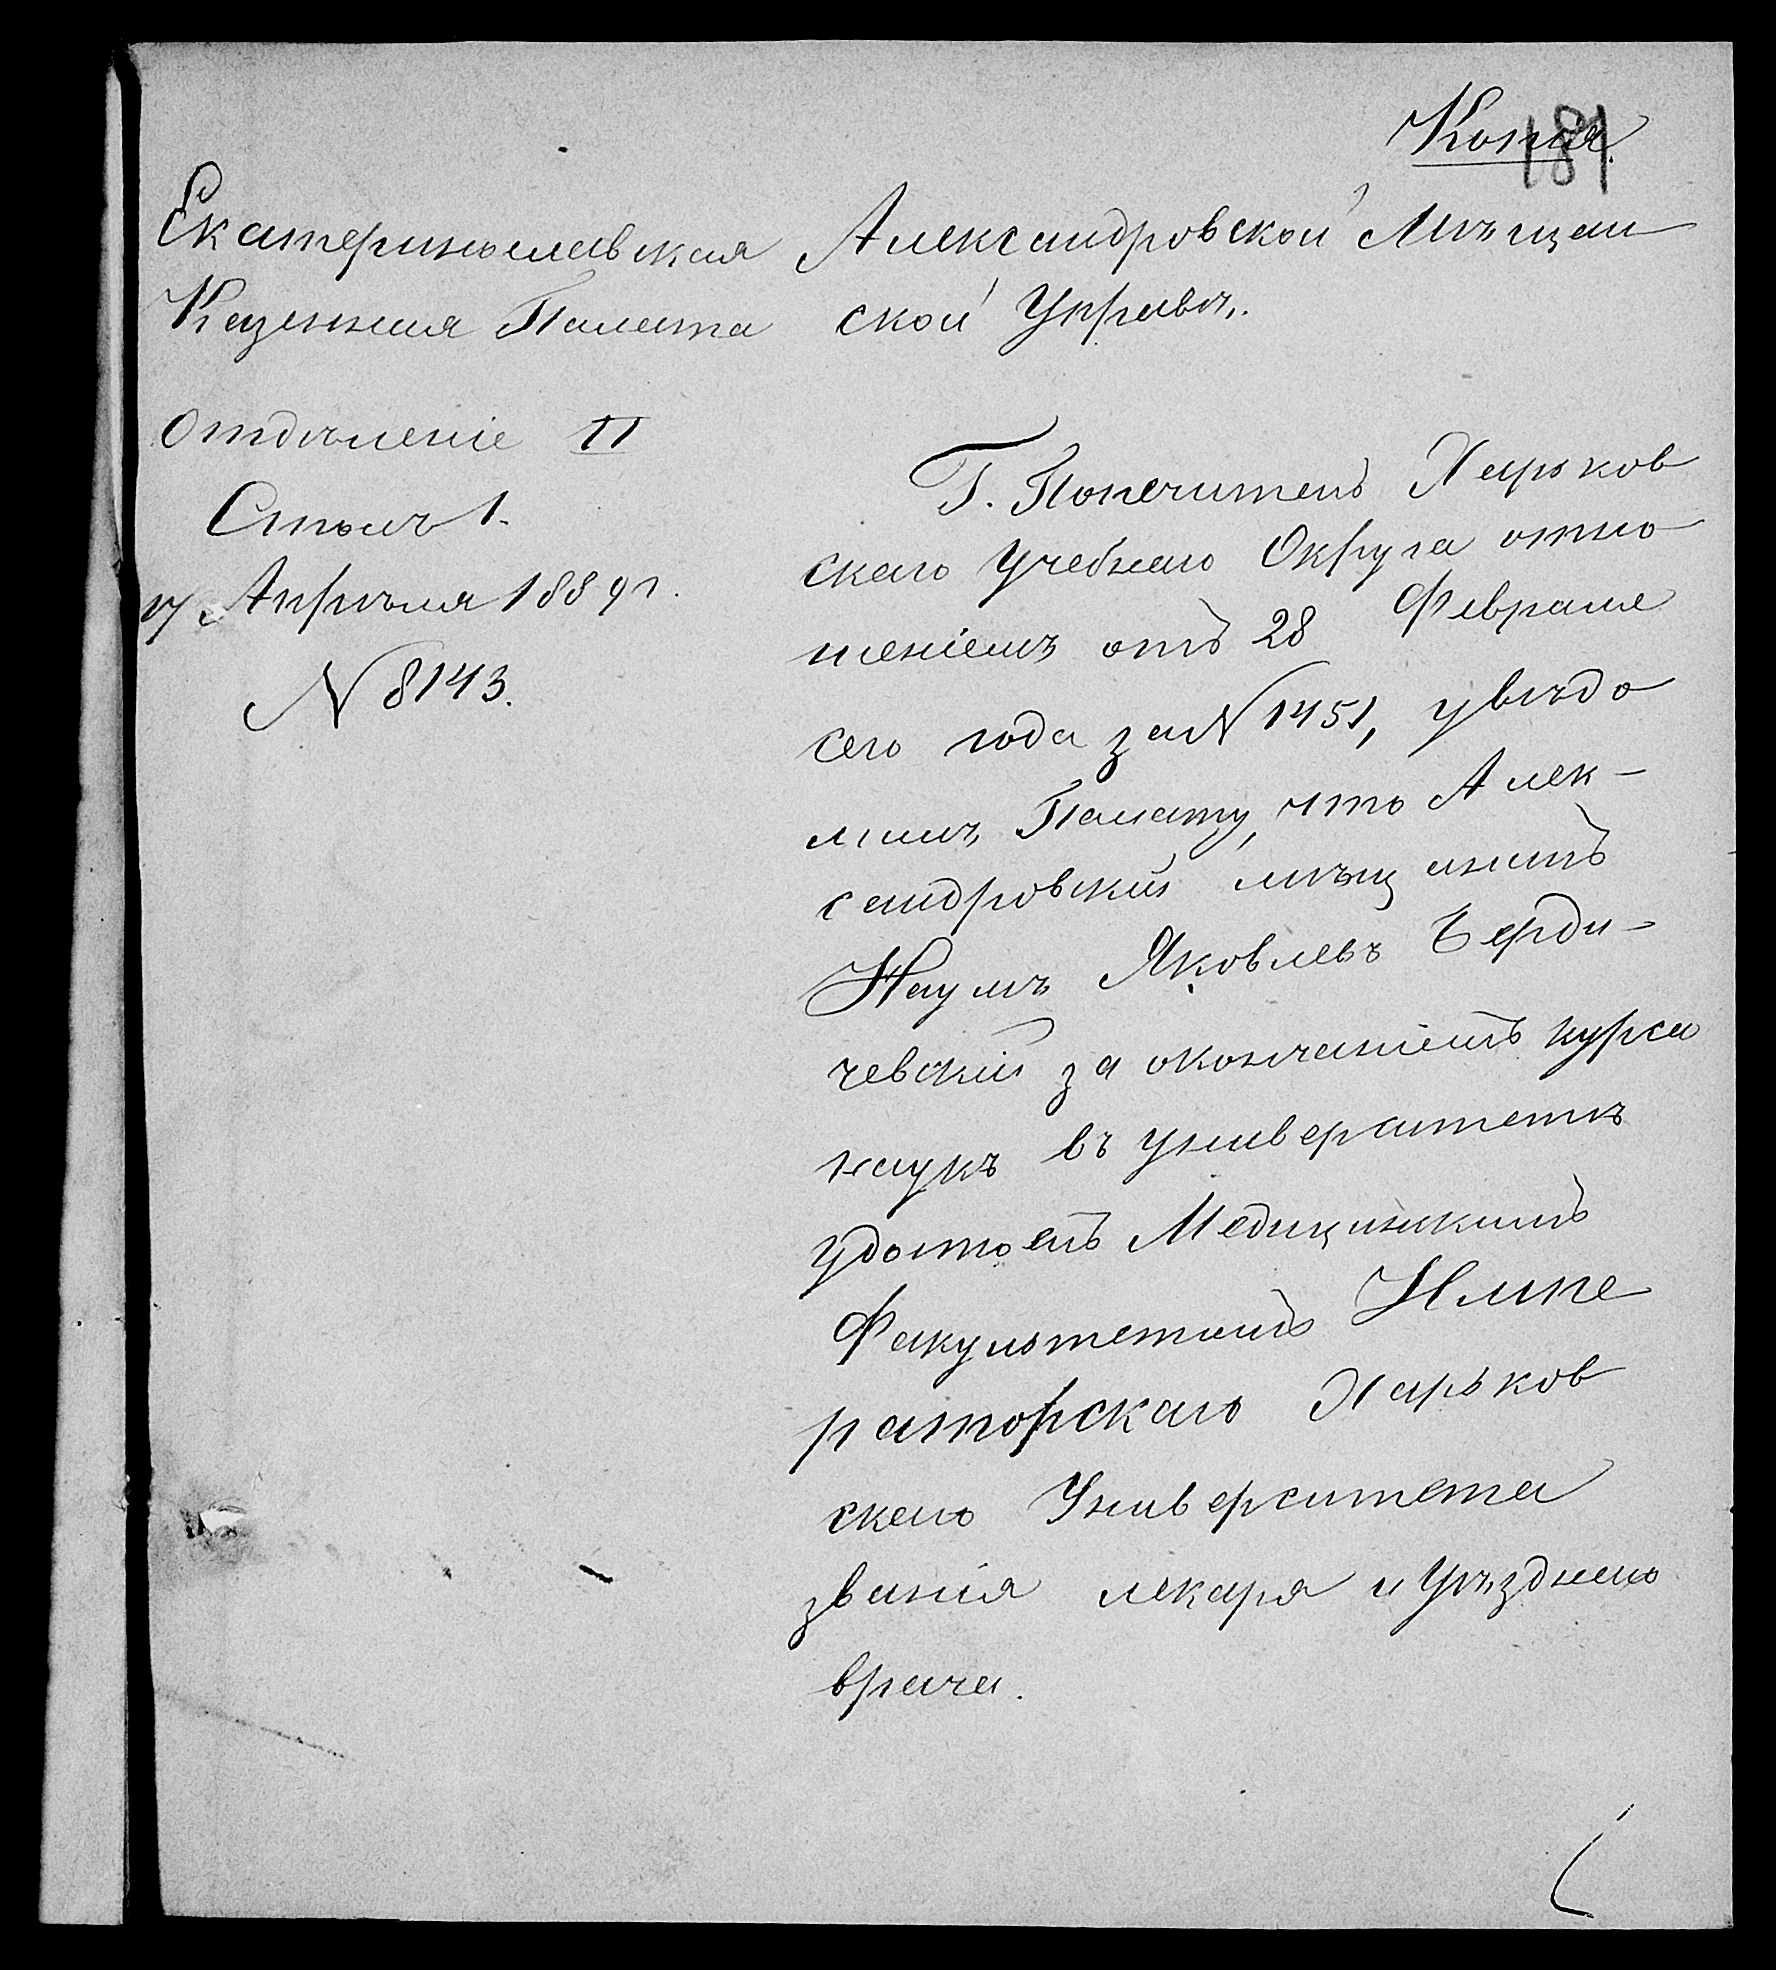 Копія.
181
Екатеринославская
Казенная Палата
Отдѣленіе II
Столъ 1.
17 Апрѣля 1889 г.
N 8143.
Александровской Мѣщан
ской Управѣ.
Г. Попечитель Харьков
скаго Учебнаго Округа отно
шеніемъ отъ 28 Февраля
сего года за N 1451, увѣдо
милъ Палату, что Алек-
сандровскій мѣщанинъ
Наумъ Яковлевъ Берди-
чевскій за окончаніемъ курса
наукъ въ университетѣ
удостоенъ Медицинскимъ
Факультетомъ Импе
раторскаго Харьков
скаго Университета
званія лекаря и Уѣзднаго
врача.